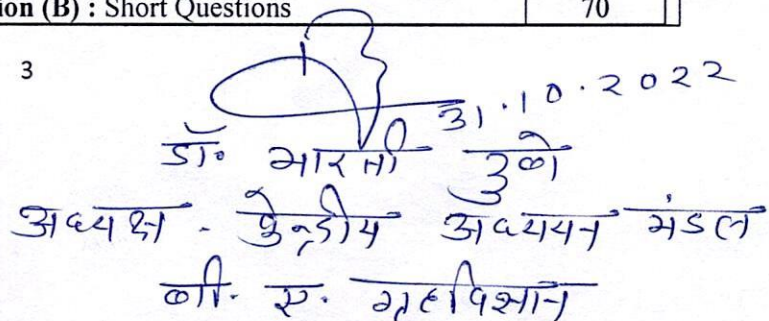 ion (B) : Short Questions 70
3
31.10.2022
डॉ. भारती दुबे
अध्यक्ष - केन्द्रीय अध्ययन मंडल
बी. ए. गृहविज्ञान